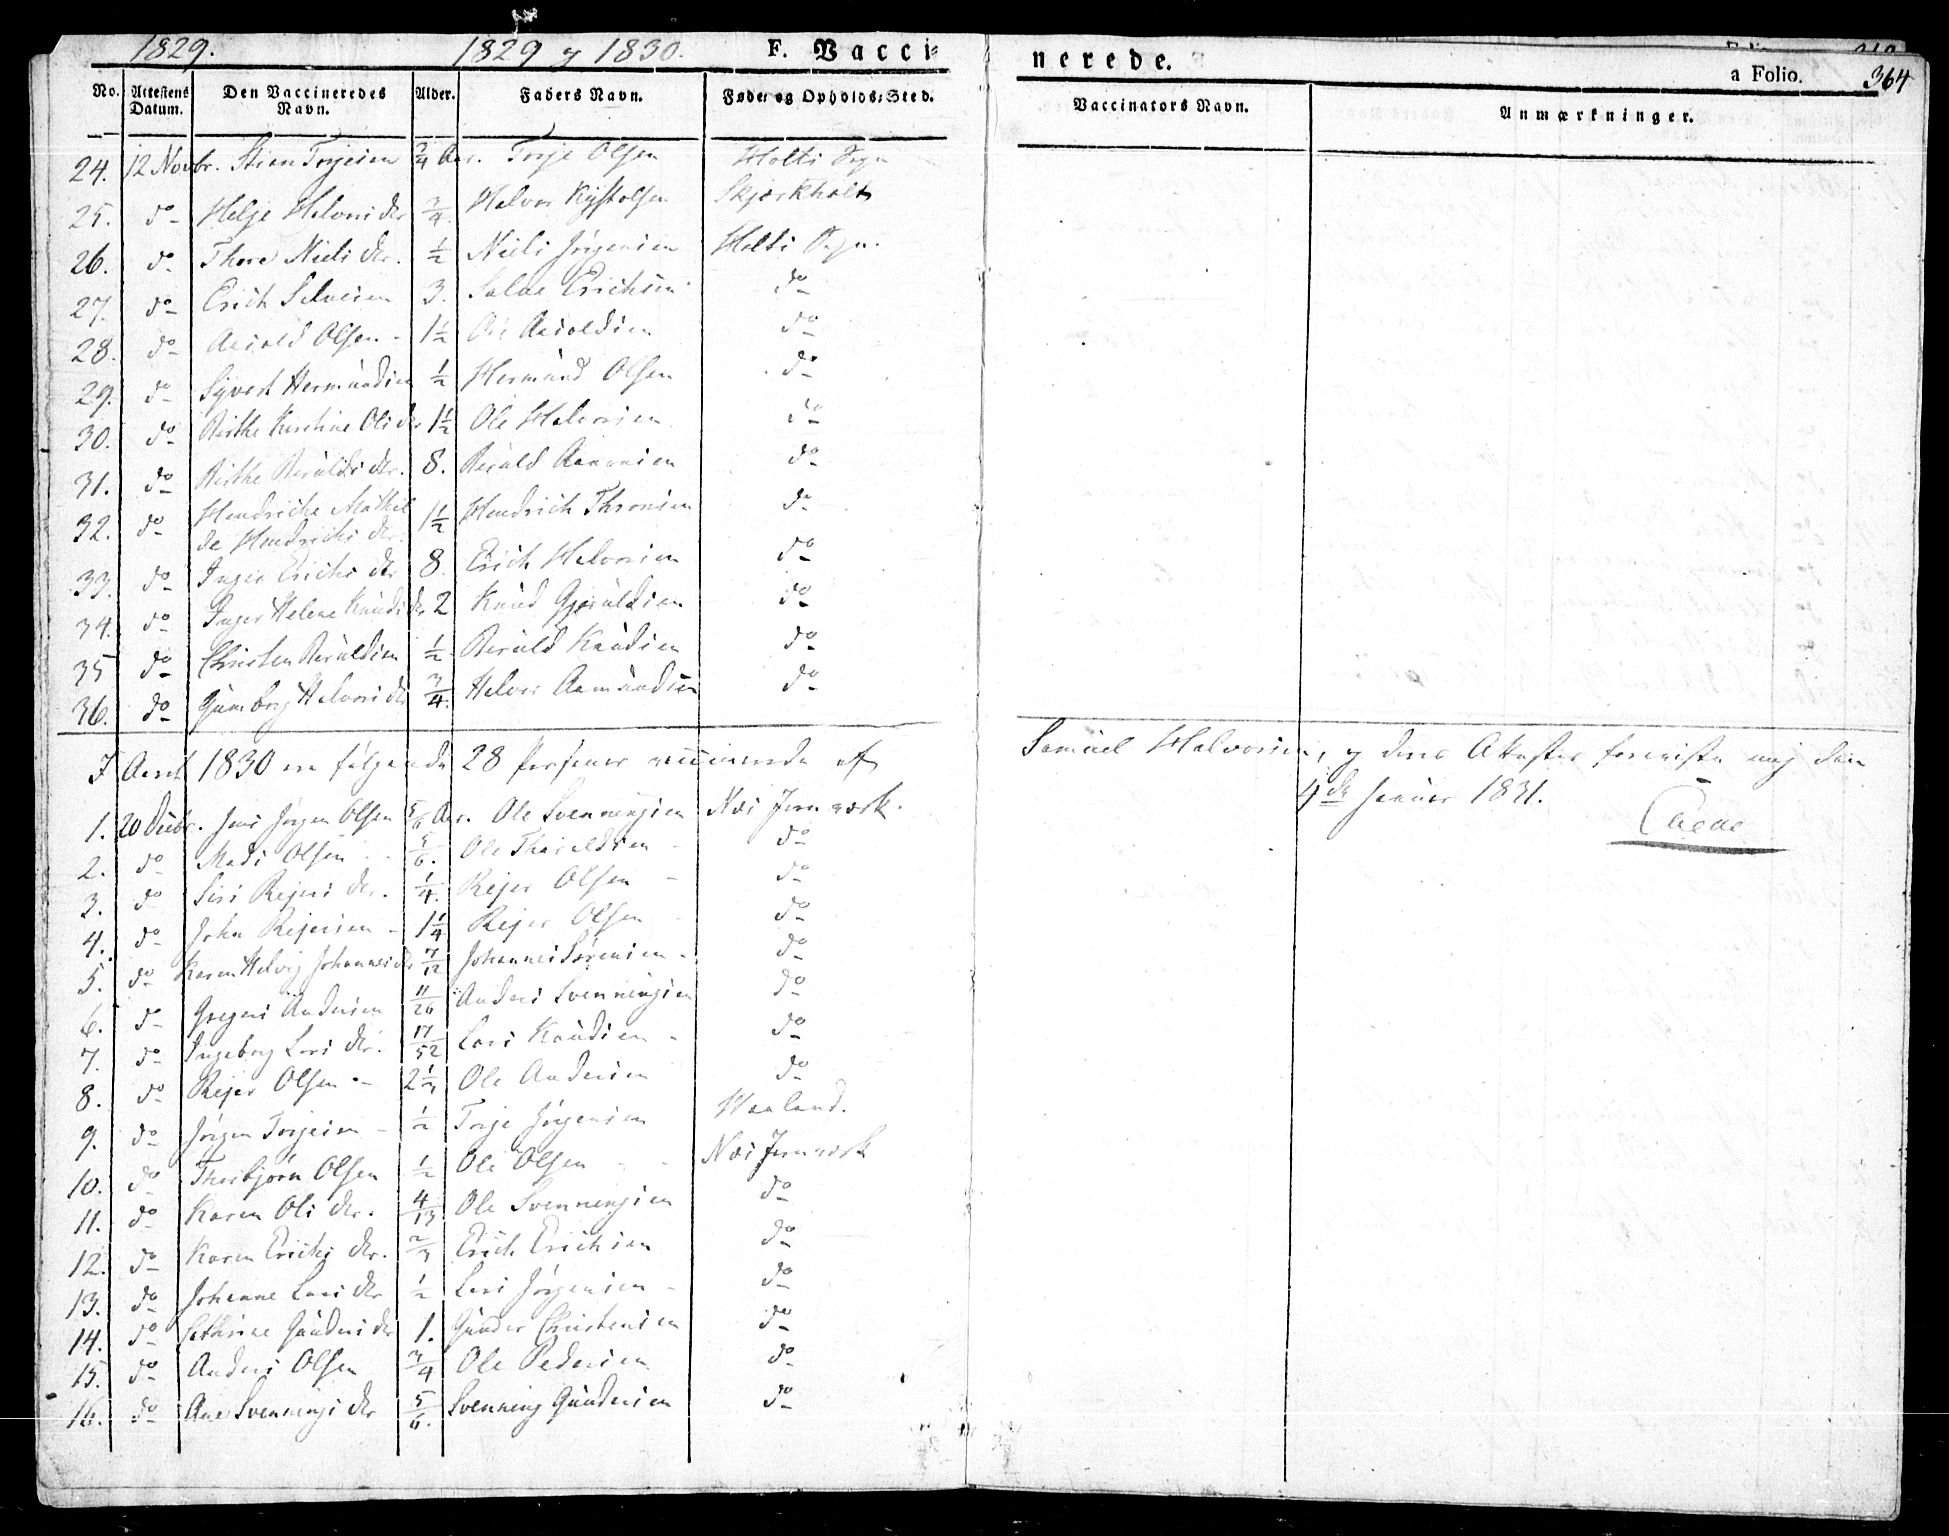 1829. 1829 og 1830. F. Vacci-
nerede.
a Folio. 364
No. Attestens Datum. Den Vaccineredes Navn. Alder. Faders Navn. Føde- og Opholds-Sted. Vaccinators Navn. Anmærkninger.
24. 12 Novbr. Stien Torjesen 3/4 Aar. Torje Olsen Holts Sogn
25. do Helje Halvors dtr 3/4. Halvor Olsen Skjærkholt
26. do Thore Niels dtr. 1/2 Niels Jørgensen Holts Sogn.
27. do Erich Salvesen 3. Salve Erichsen do
28. do Aasold Olsen - 1 1/2 Ole Aasoldsen do
29. do Syvert Hermundsen 1/2 Hermund Olsen do
30. do Birthe Kirstine Ols dtr 1 1/2 Ole Halvorsen do
31. do Birthe Berulds dtr. 8. Berüld Aanonsen do
32. do Hendriche Mathil
de Hendrichs dtr. 1 1/2 Hendrich Thronsen do
33. do Inger Erichs dtr 8. Erich Halvorsen do
34. do Inger Helene Knuds dtr 2 Knud Gjeruldsen do
35 do Christen Beruldsen 1/2 Berüld Knudsen do
36. do Gunborg Halvors dtr 3/4. Halvor Aamundsen do
I Aaret 1830 ere følgende 28 Personer vaccinerede af Samuel Halvorsen, og deres Attester foreviste mig den
4de Januar 1831.
1. 20 Decbr. Jens Jørgen Olsen 5/6 Aar. Ole Svenningsen Næs Jernværk.
2. do Mads Olsen - 5/6. Ole Tharaldsen - do
3. do Siri Rejers dtr. 1/4. Rejer Olsen - do
4. do John Rejersen - 1 1/4 Rejer Olsen - do
5. do Karen Helvig Johannes dtr 7/12 Johannes Sørensen - do
6. do Gregers Andersen 11/26 Anders Svenningsen do
7. do Ingeborg Lars dtr. 17/52 Lars Knudsen - do
8. do Rejer Olsen - 2 1/3 Ole Andersen do
9. do Jørgen Torjesen - 1/2 Torje Jørgensen Waaland.
10. do Thorbjørn Olsen 1/2 Ole Olsen - Næs Jernværk
11. do Karen Ols dtr. 4/13 Ole Svenningsen do
12. do Karen Erichs dtr. 2/3 Erich Erichsen do
13. do Johanne Lars dtr 1/2 Lars Jørgensen - do
14. do Cathrine Gunders dtr 1. Gunder Christensen do
15. do Anders Olsen 3/4 Ole Pedersen do
16. do Ane Svennings dtr 5/6. Svenning Gundersen do